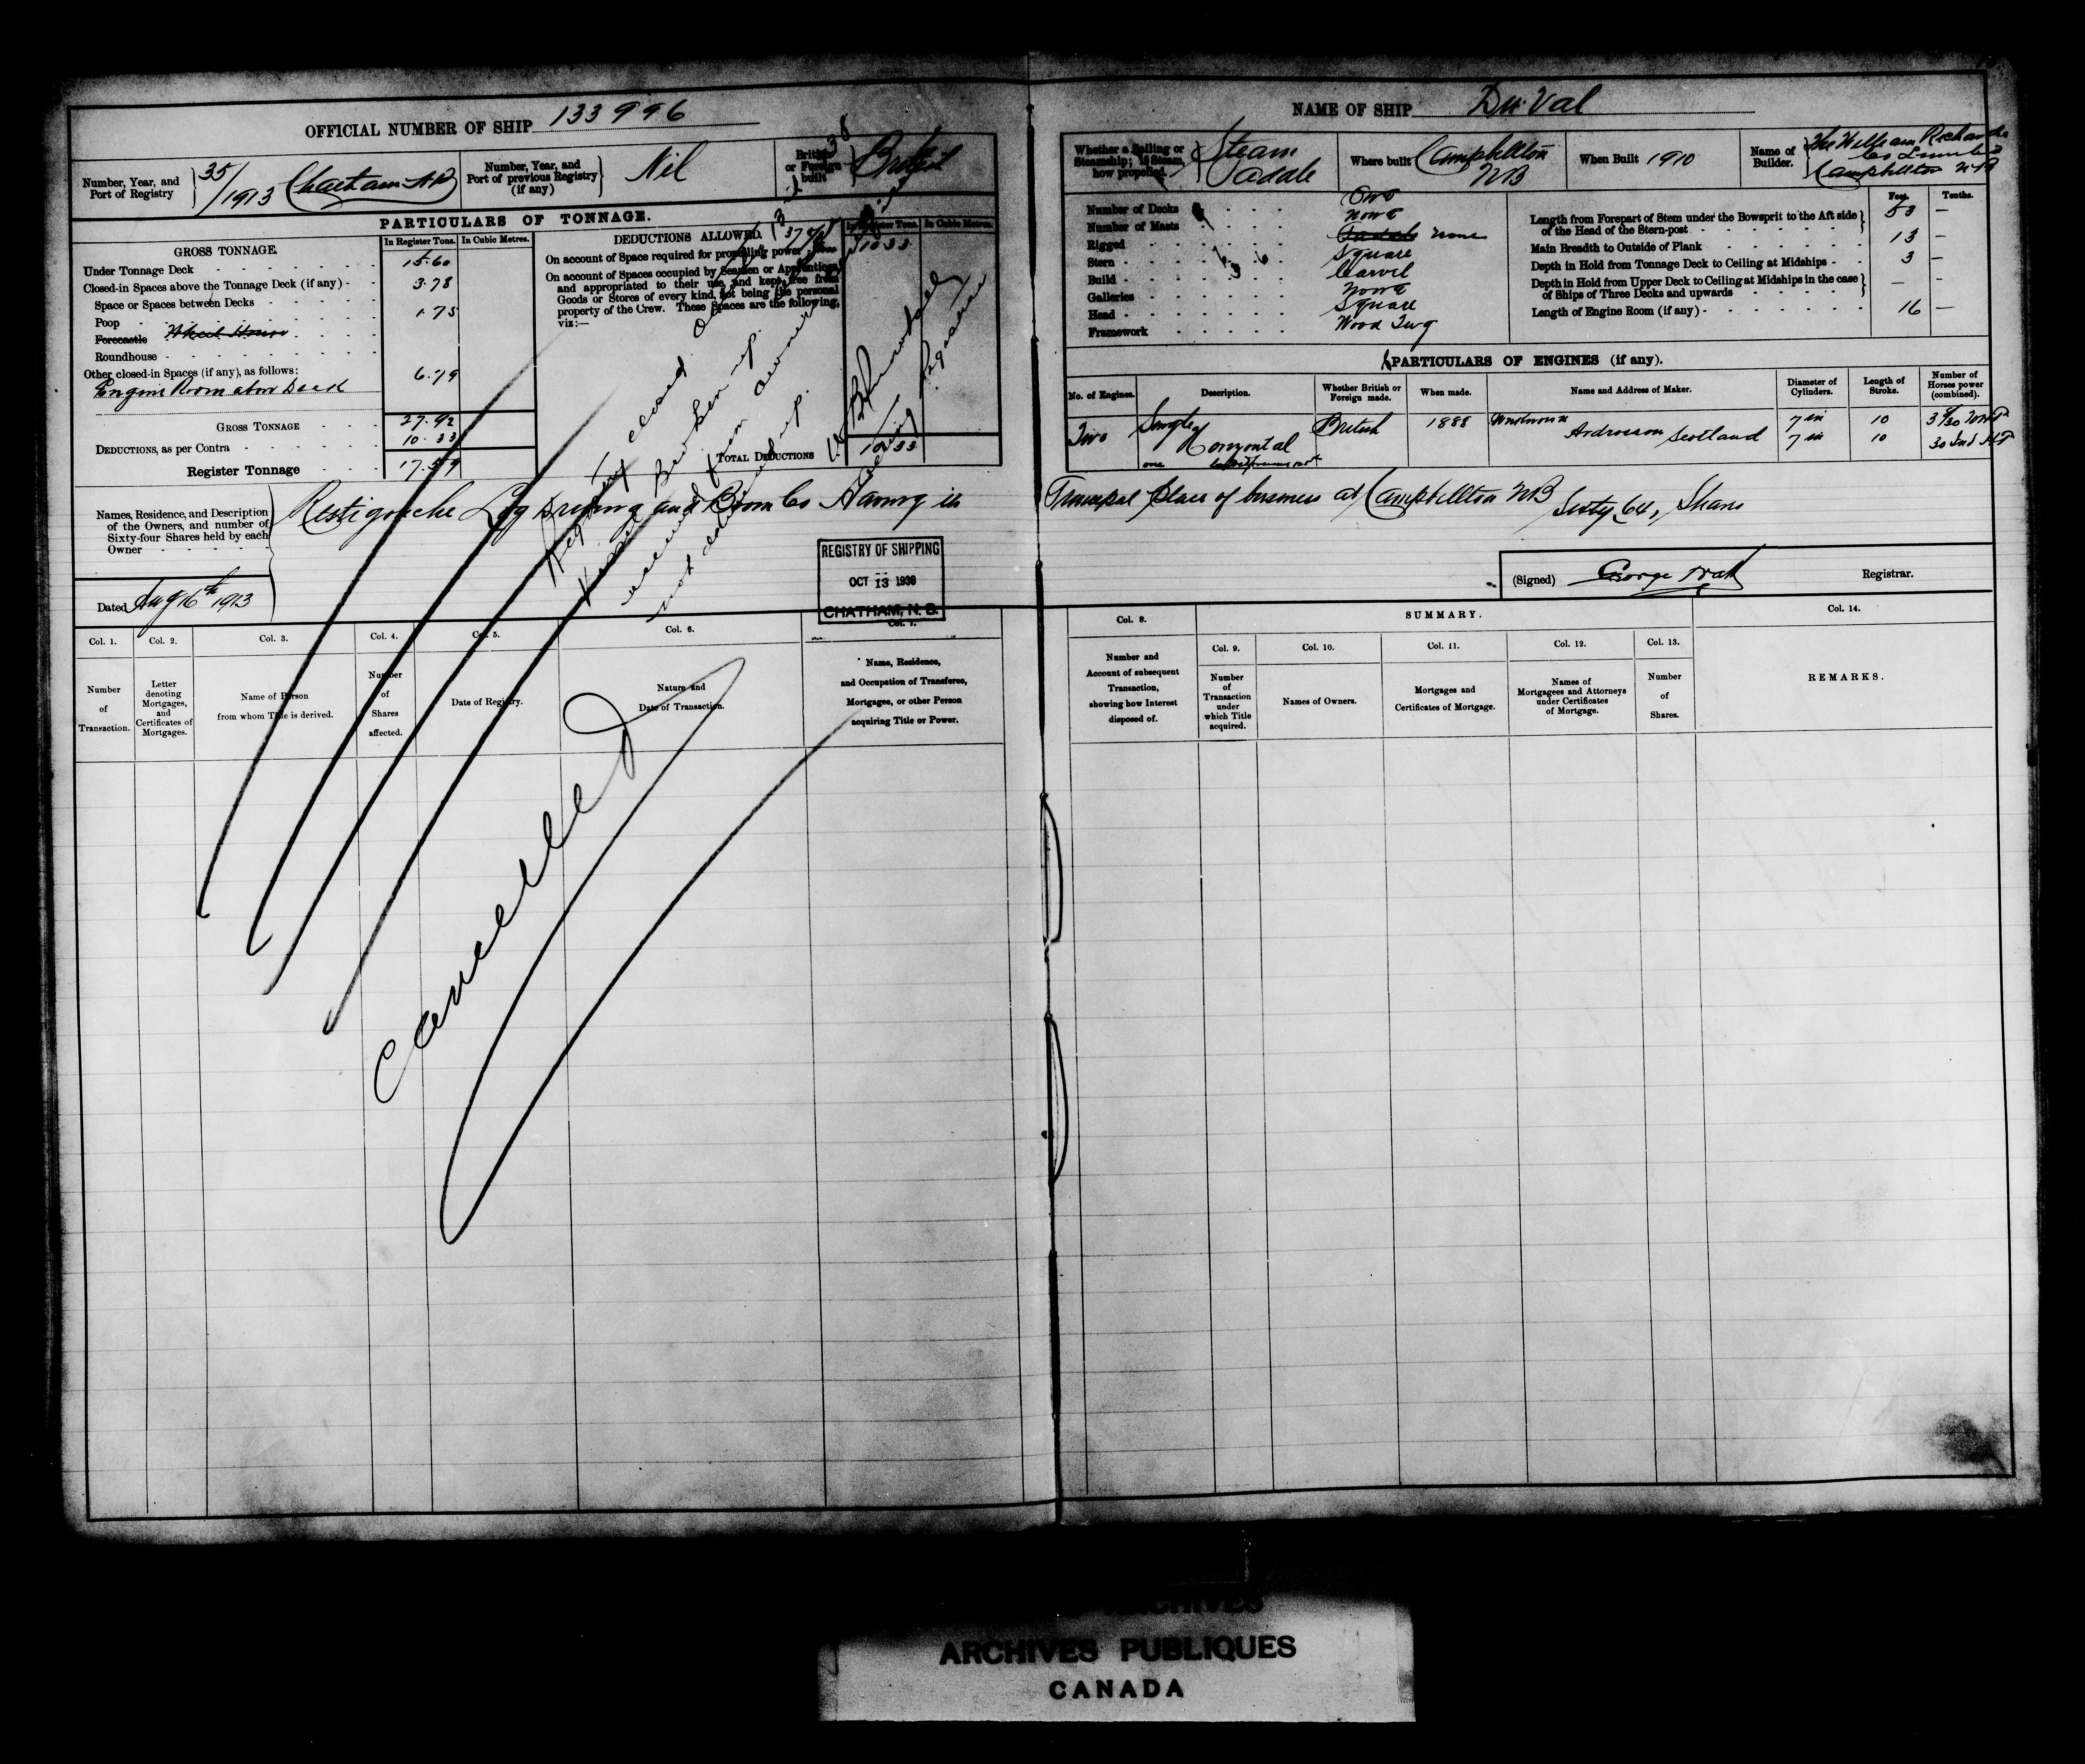 OFFICIAL NUMBER OF SHIP 133996
Number, Year, and
Port of Registry
35/1913 Chatham NB
Number, Year, and
Port of previous Registry
(if any)
Nil
British
or Foreign
built
British
PARTICULARS OF TONNAGE.
GROSS TONNAGE.
In Register Tons. In Cubic Metres.
Under Tonnage Deck 15.60
Closed-in Spaces above the Tonnage Deck (if any) - 3.78
Space or Spaces between Decks
Poop 1.75
Forecastle Wheel House
Roundhouse
Other closed-in Spaces (if any), as follows: 6.79
Engine Room above Deck
GROSS TONNAGE 27.92
DEDUCTIONS, as per Contra 10.33
Register Tonnage 17.59
DEDUCTIONS ALLOWED.
In Register Tons. In Cubic Metres.
On account of Space required for propelling power 10.33
On account of Spaces occupied by Seamen or Apprentices,
and appropriated to their use, and kept free from
Goods or Stores of every kind, not being the personal
property of the Crew. These Spaces are the following,
viz:—
TOTAL DEDUCTIONS 10.33
Registry closed
Vessel Broken up.
received from owners
Registrar
Names, Residence, and Description
of the Owners, and number of
Sixty-four Shares held by each
Owner
Restigouche Log Driving and Boom Co Having its
Dated Aug 16th 1913
REGISTRY OF SHIPPING
OCT 13 1938
CHATHAM, N. B.
Col. 1.
Number
of
Transaction.
Col. 2.
Letter
denoting
Mortgages,
and
Certificates of
Mortgages.
Col. 3.
Name of Person
from whom Title is derived.
Col. 4.
Number
of
Shares
affected.
Col. 5.
Date of Registry.
Col. 6.
Nature and
Date of Transaction.
Col. 7.
Name, Residence,
and Occupation of Transferee,
Mortgagee, or other Person
acquiring Title or Power.
Cancelled
NAME OF SHIP Du Val
Whether a Sailing or
Steamship; if Steam,
how propelled.
Steam
Padale
Where built
Campbellton
NB
When Built 1910
Name of
Builder.
The William Richards
Co Limited
Campbellton NB
Number of Decks One
Number of Masts None
Rigged Padale None
Stern Square
Build Carvel
Galleries None
Head Square
Framework Wood Tug
Feet. Tenths.
Length from Forepart of Stem under the Bowsprit to the Aft side
of the Head of the Stern-post 53 —
Main Breadth to Outside of Plank 13 —
Depth in Hold from Tonnage Deck to Ceiling at Midships - 3 —
Depth in Hold from Upper Deck to Ceiling at Midships in the case
of Ships of Three Decks and upwards — —
Length of Engine Room (if any) - 16 —
PARTICULARS OF ENGINES (if any).
No. of Engines.
Description.
Whether British or
Foreign made.
When made.
Name and Address of Maker.
Diameter of
Cylinders.
Length of
Stroke.
Number of
Horses power
(combined).
Two Single British 1888 Unknown 7 in 10
Horizontal Ardrossan Scotland 7 in 10 30 Ind HP
Principal place of business at Campbellton NB Sixty 64, Shares
(Signed) George Watt Registrar.
Col. 8.
Number and
Account of subsequent
Transaction,
showing how Interest
disposed of.
SUMMARY.
Col. 9.
Number
of
Transaction
under
which Title
acquired.
Col. 10.
Names of Owners.
Col. 11.
Mortgages and
Certificates of Mortgage.
Col. 12.
Names of
Mortgagees and Attorneys
under Certificates
of Mortgage.
Col. 13.
Number
of
Shares.
Col. 14.
REMARKS.
ARCHIVES
ARCHIVES PUBLIQUES
CANADA